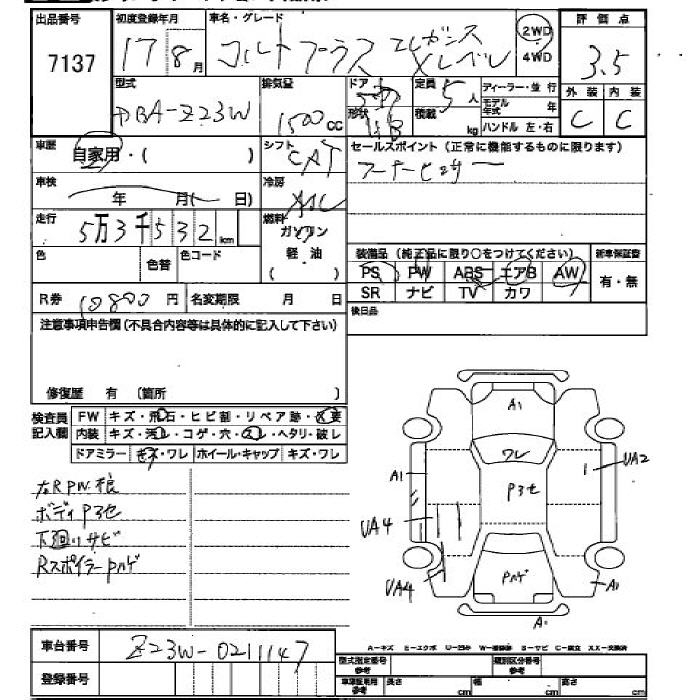 出品番号 初度登録年月 車名・グレード 評価点
7137 17 8月 コルトプラス エレガンス Xレベル 2WD 4WD 3.5
型式 排気量 ドア 定員 ディーラー・並行 外装 内装
DBA-Z23W 1500cc 5 5人 モデル年式 年 C C
形状 積載 kg ハンドル 左・右
車歴 自家用・( ) シフト CAT セールスポイント(正常に機能するものに限ります)
車検 年 月( 日) 冷房
走行 5万3千532km 燃料 ガソリン
色 色替 色コード 軽油 装備品(純正品に限り○をつけてください) 新車保証書
( ) PS PW ABS エアB AW 有・無
R券 10800円 名変期限 月 日 SR ナビ TV カワ
注意事項申告欄(不具合内容等は具体的に記入して下さい) 後日品
修復歴 有 〔箇所 〕
検査員記入欄 FW キズ・飛石・ヒビ割・リペア跡・X要
内装 キズ・汚れ・コゲ・穴・スレ・ヘタリ・破レ
ドアミラー キズ・ワレ ホイール・キャップ キズ・ワレ
左R
ボディ
下廻りサビ
Rスポイラー
A1
ワレ
A1
UA2
UA4
UA4
A1
A1
車台番号 Z23W-0211147
A-キズ E-エクボ U-凹み W-補修跡 S-サビ C-腐立 XX-交換済
登録番号 型式指定番号 参考 類別区分番号 参考
車庫証明用 参考 長さ cm 幅 cm 高さ cm